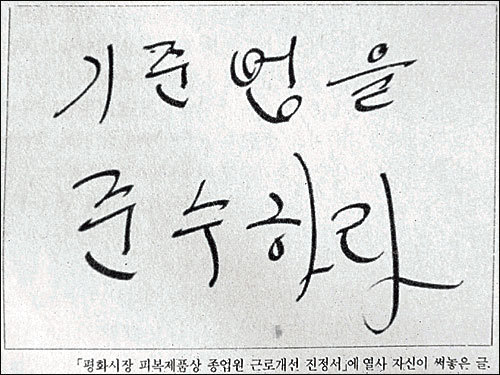 기준법을
준수하라
「평화시장 피복제품상 종업원 근로개선 진정서」에 열사 자신이 써놓은 글.